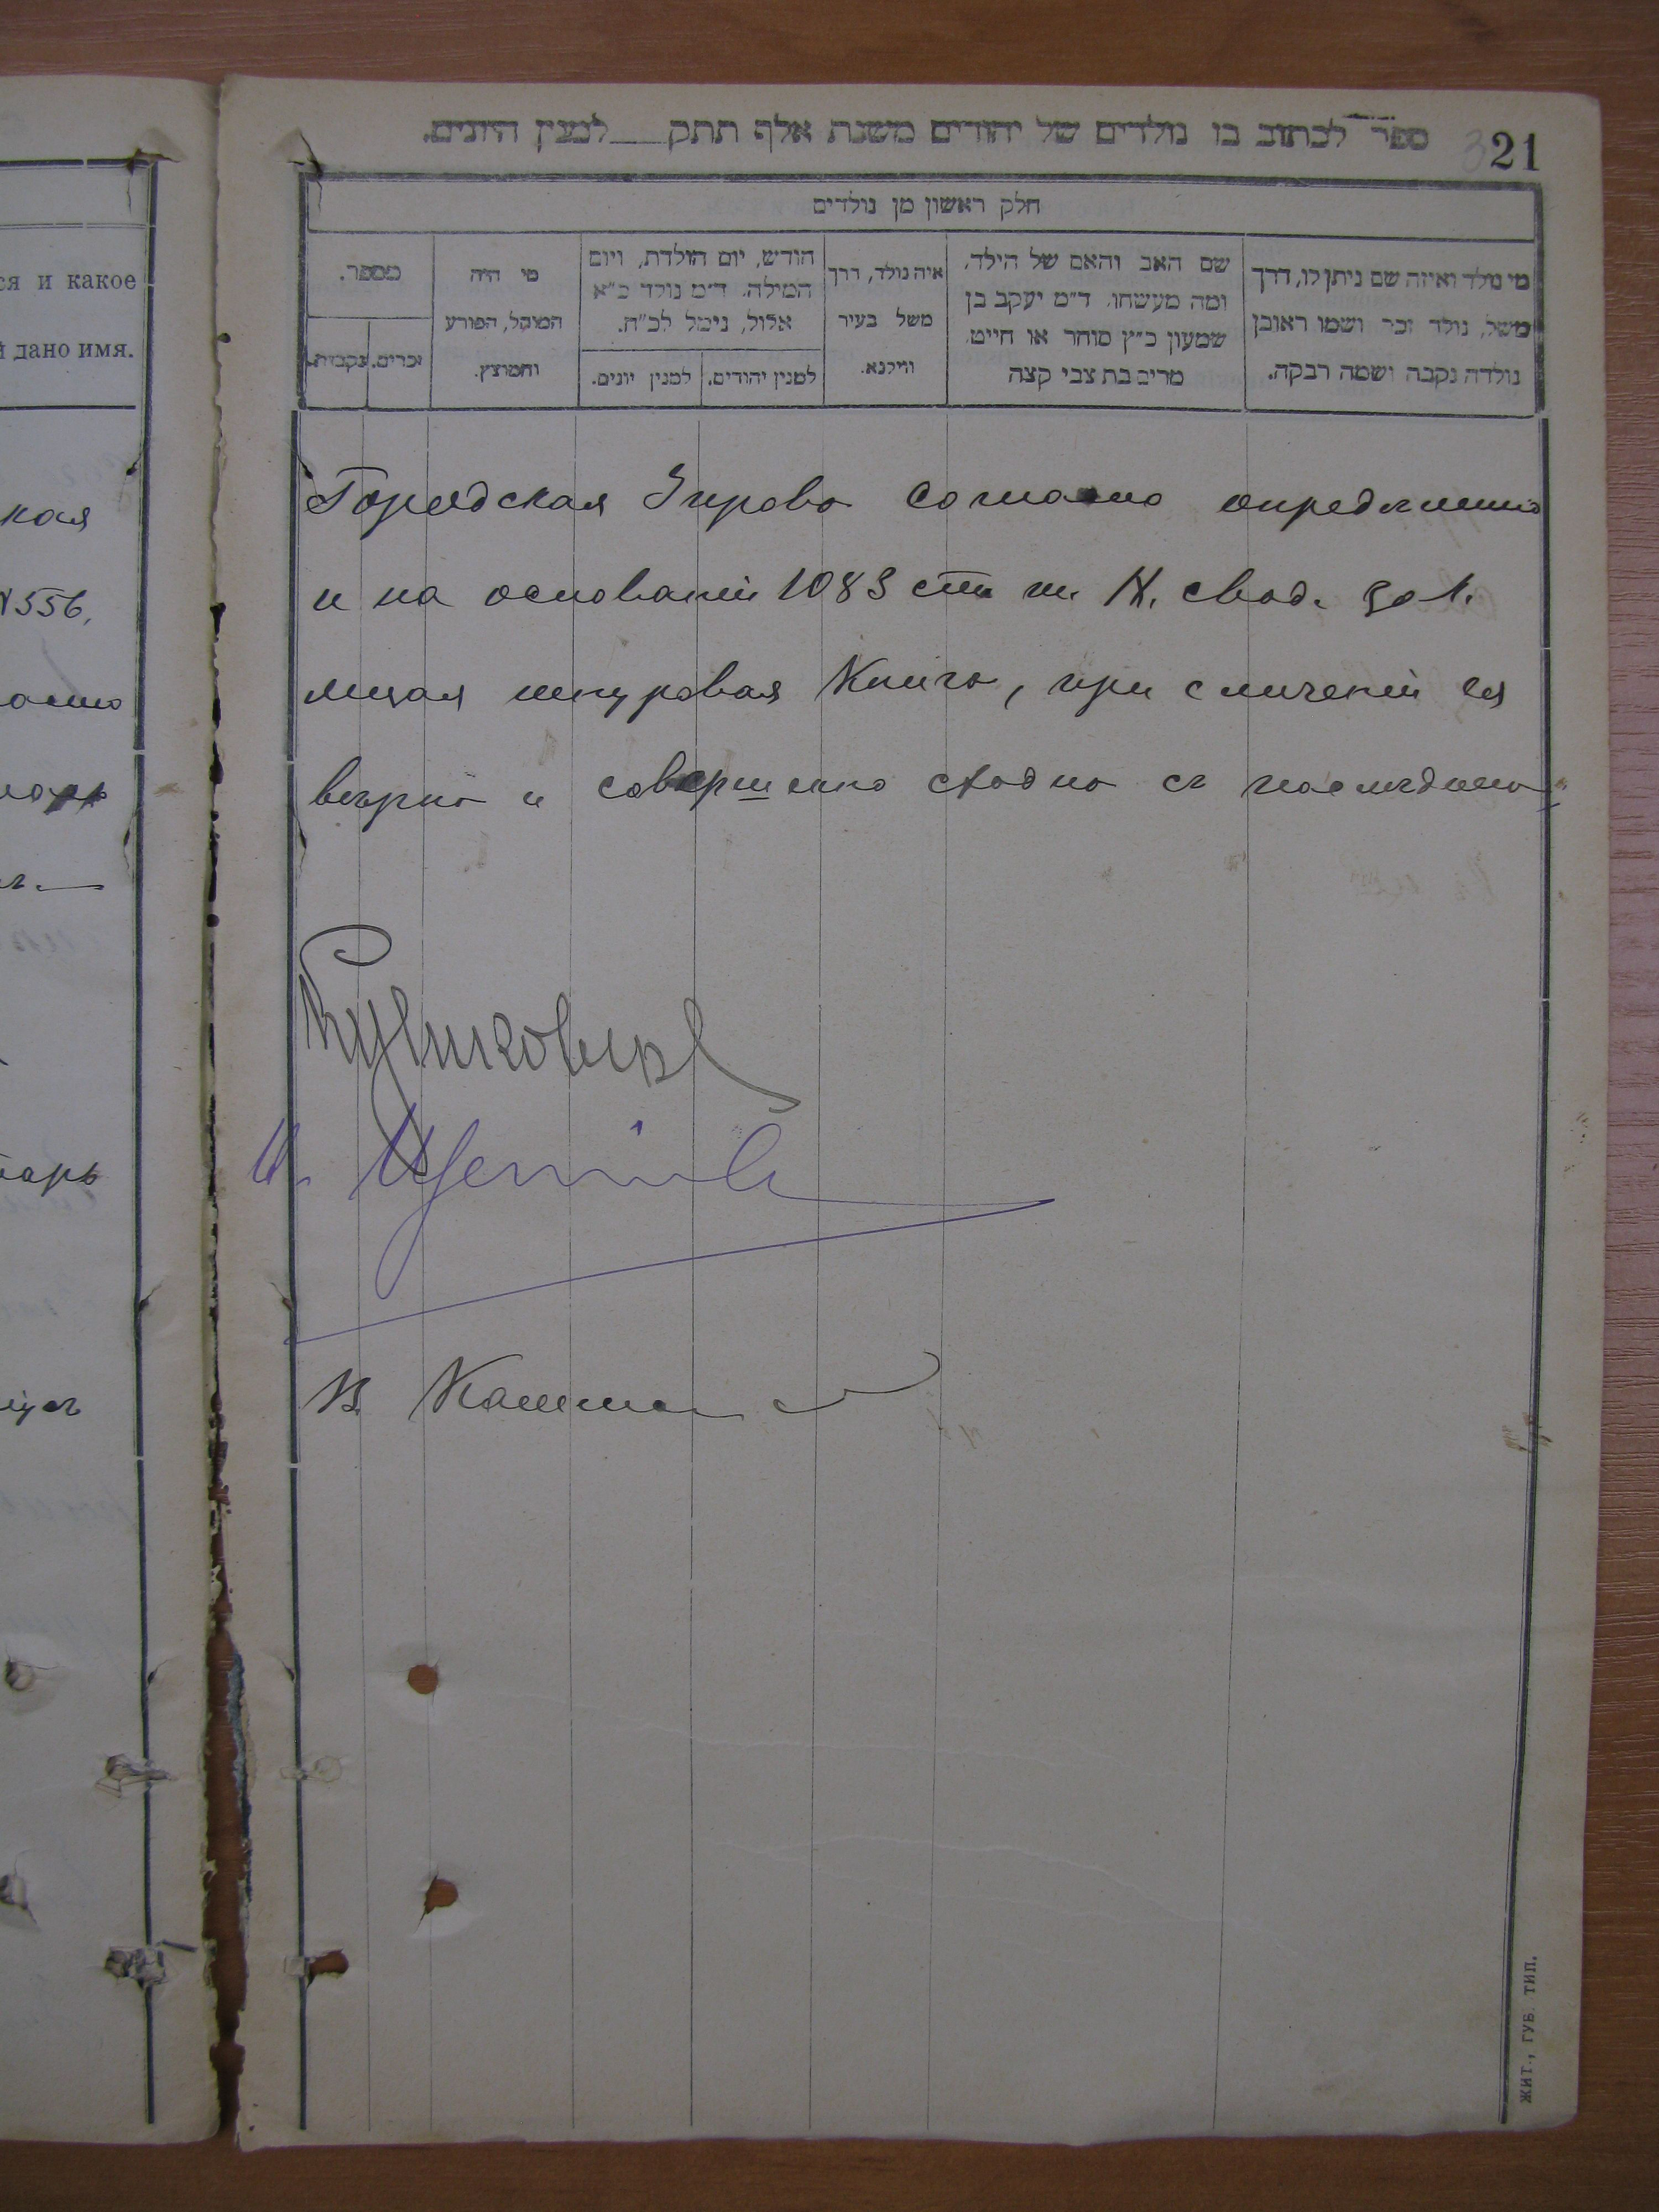 ספר לכתוב בו נולדים של יהודים משנת אלף תתק למנין היונים.
321
חלק ראשון מן נולדים
מי נולד ואיזה שם ניתן לו, דרך
משל, נולד זכר ושמו ראובן
נולדה נקבה ושמה רבקה.
שם האב והאם של הילד,
ומה מעשהו. ד״מ יעקב בן
שמעון כ״ץ סוחר או חייט
מרים בת צבי קצה
איה נולד, דרך
משל בעיר
ווילנא.
חודש, יום הולדת, ויום
המילה. ד״מ נולד כ״א
אלול, נימל לכ״ח.
למנין יהודים.
למנין יונים.
מי היה
המוהל, הפורע
והמוצץ.
מספר.
זכרים.
נקבות.
ся и какое
дано имя.
кая
№556,
тарь
Городская Управа согласно определенію
и на основаніи 1083 ст. т. IX. свод. зак.
шнуровая Книга, при сличеніи ея
верна и совершенно сходна съ
И.
В.
ЖИТ., ГУБ. ТИП.